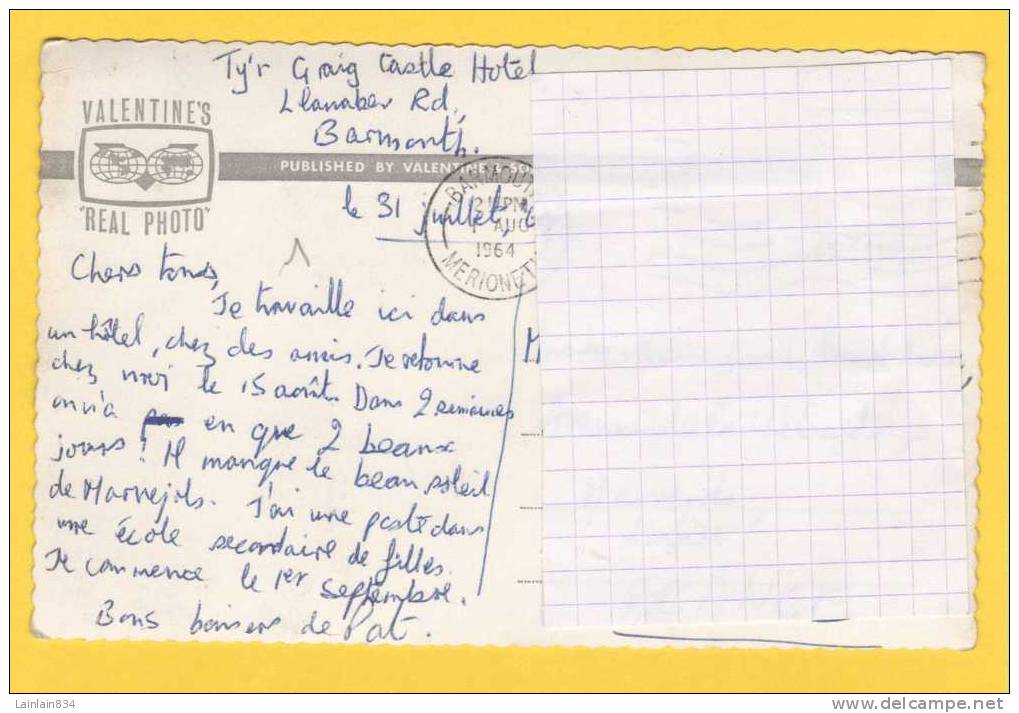 Ty'r Graig Castle Hotel
Llanaber Rd,
Barmouth.
VALENTINE'S
"REAL PHOTO"
PUBLISHED BY VALENTINE & SO
BARMOUTH
PM
AUG
1964
MERIONETH
le 31 juillet, 6
Chers tous,
Je travaille ici dans
un hôtel, chez des amis. Je retourne
chez moi le 15 août. Dans 2 semaines
on n'a en que 2 beaux
jours! Il manque le beau soleil
de Marvejols. J'ai une poste dans
une école secondaire de filles.
Je commence le 1er septembre.
Bons baisers de Pat.
Lainlain834
www.delcampe.net